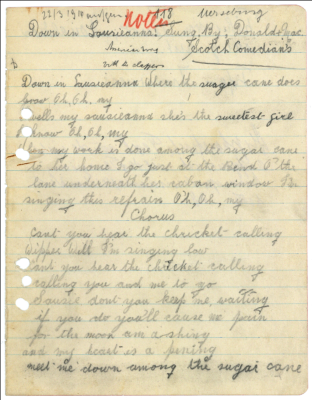 22/3 1918
Notter
Merseburg
Down in Louisieanna. Sung. By, Donald & Mac
Scotch Comedians
Down in Lousieanna where the suager cane does
grow Oh, Oh, my
wells my Lousieanna she's the sweetest girl
I know Oh, Oh, my
my work is done among the sugar cane
to her home I go just at the Bend O' the
lane underneath her caban window I'm
singing this refrain Oh, Oh, my
Chorus
Cant you hear the chricket calling
dipper will I'm singing low
Cant you hear the chricket calling
calling you and me to go
Lousie dont you keep me, waiting
if you do you'll cause me pain
for the moon am a shinig
and my heart is a pening
meet me down among the sugar cane